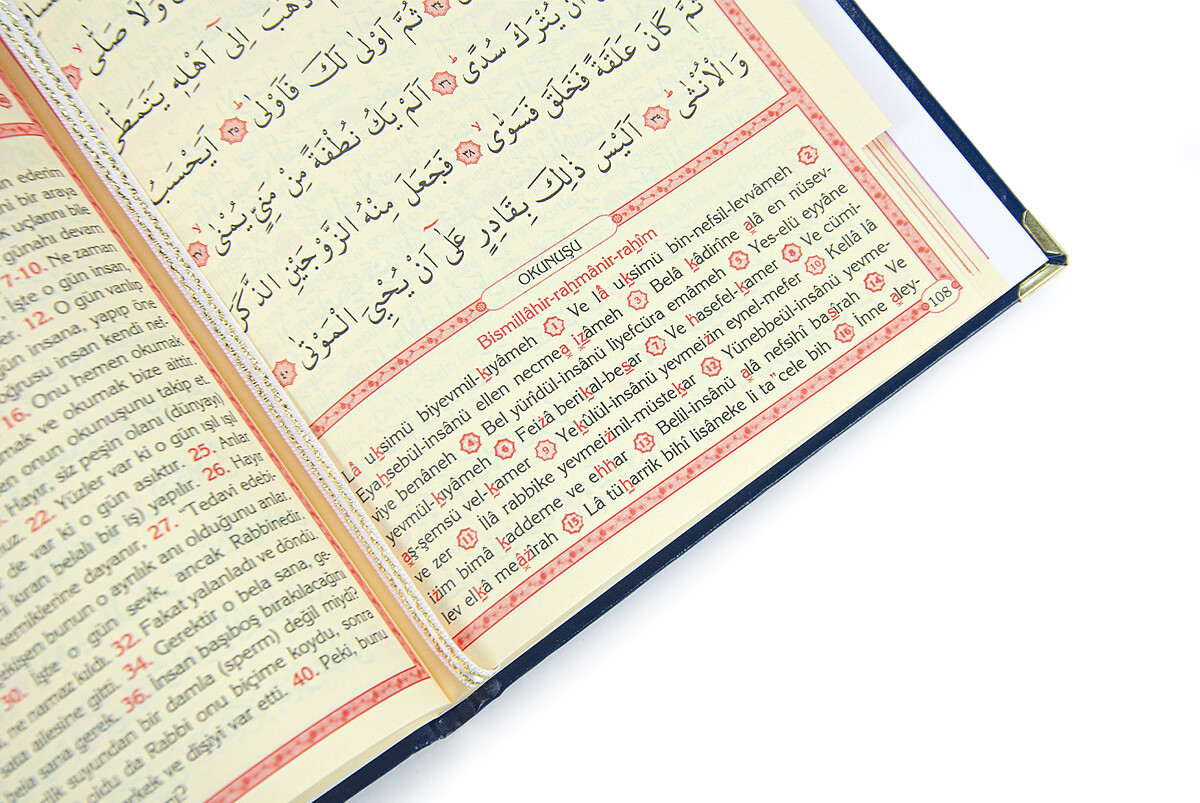 وَلَا صَلّٰى
ذَهَبَ اِلٰٓى اَهْلِه۪ يَتَمَطّٰى
ثُمَّ اَوْلٰى لَكَ فَاَوْلٰى ٣٥ اَيَحْسَبُ
اَنْ يُتْرَكَ سُدًى ٣٦ اَلَمْ يَكُ نُطْفَةً مِنْ مَنِيٍّ يُمْنٰى ٣٧
ثُمَّ كَانَ عَلَقَةً فَخَلَقَ فَسَوّٰى ٣٨ فَجَعَلَ مِنْهُ الزَّوْجَيْنِ الذَّكَرَ
وَالْاُنْثٰى ٣٩ اَلَيْسَ ذٰلِكَ بِقَادِرٍ عَلٰٓى اَنْ يُحْيِيَ الْمَوْتٰى ٤٠
OKUNUŞU
Bismillâhir-rahmânir-rahîm
Lâ uksimü biyevmil-kıyâmeh 1 Ve lâ uksimü bin-nefsil-levvâmeh 2
Eyahsebül-insânü ellen necmea izâmeh 3 Belâ kâdirîne alâ en nüsev-
viye benâneh 4 Bel yürîdül-insânü liyefcüra emâmeh 5 Yes-elü eyyâne
yevmül-kıyâmeh 6 Feizâ berikal-besar 7 Ve hasefel-kamer 8 Ve cümi-
aş-şemsü vel-kamer 9 Yekûlül-insânü yevmeizin eynel-mefer 10 Kellâ lâ
ve zer 11 İlâ rabbike yevmeizinil-müstekar 12 Yünebbeül-insânü yevme-
izim bimâ kaddeme ve ehhar 13 Belil-insânü alâ nefsihî basîrah 14 Ve
lev elkâ meâzîrah 15 Lâ tüharrik bihî lisâneke li ta"cele bih 16 İnne aley-
108
ederim
ni bir araya
k uçlarını bile
günahı devam
7-10. Ne zaman
İşte o gün insan,
12. O gün varılıp
gün insana, yapıp öne
oğrusu insan kendi nef-
16. Onu hemen okumak
mak ve okumak bize aittir.
onun okunuşunu takip et.
Hayır, siz peşin olanı (dünyayı)
22. Yüzler var ki o gün ışıl ışıl
de var ki o gün asıktır. 25. Anlar
kıran belalı bir iş) yapılır. 26. Hayır
kemiklerine dayanır, 27. "Tedavi edebi-
bunun o ayrılık anı olduğunu anlar.
30. İşte o gün sevk, ancak Rabbinedir.
ne namaz kıldı. 32. Fakat yalanladı ve döndü.
ailesine gitti. 34. Gerektir o bela sana, ge-
bela sana gerek. 36. İnsan başıboş bırakılacağını
suyundan bir damla (sperm) değil miydi?
oldu da Rabbi onu biçime koydu, sonra
erkek ve dişiyi var etti. 40. Peki, bunu